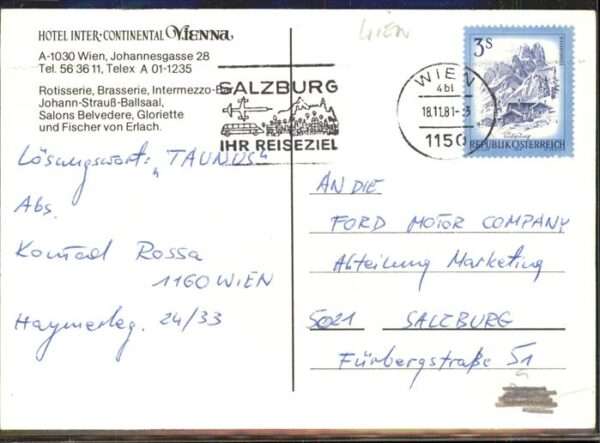 HOTEL INTER·CONTINENTAL Vienna
A-1030 Wien, Johannesgasse 28
Tel. 56 36 11, Telex A 01-1235
Rotisserie, Brasserie, Intermezzo-Bar,
Johann-Strauß-Ballsaal,
Salons Belvedere, Gloriette
und Fischer von Erlach.
WIEN
SALZBURG
IHR REISEZIEL
WIEN
4bl
18.11.81-
1150
3S
REPUBLIK ÖSTERREICH
Lösungswort: "TAUNUS"
Abs.
Konrad Rossa
1160 WIEN
Haymerleg. 24/33
AN DIE
FORD MOTOR COMPANY
Abteilung Marketing
5021 SALZBURG
Fürbergstraße 51